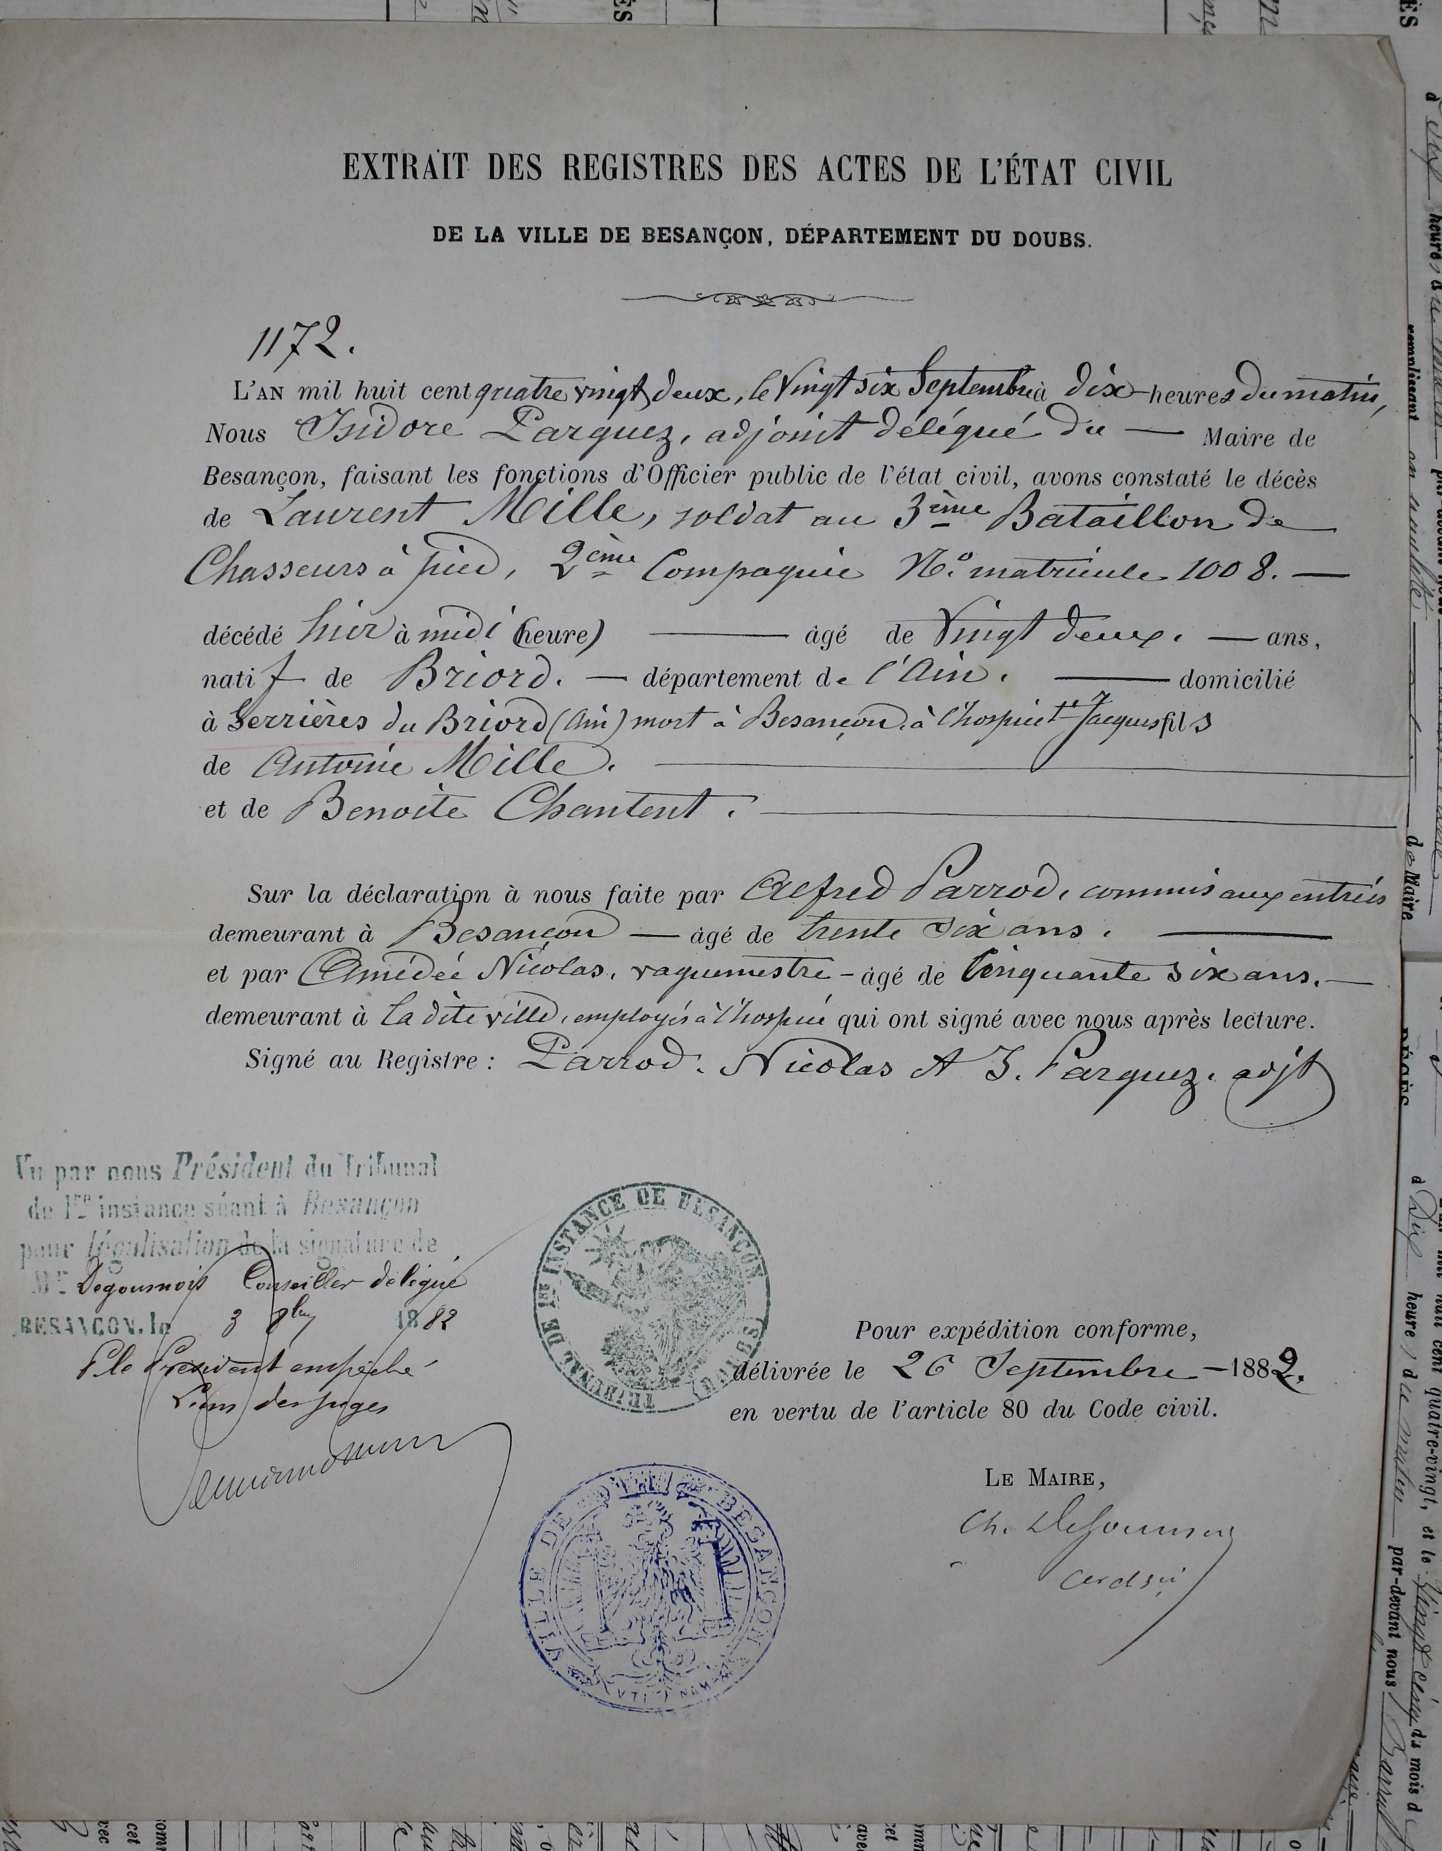 EXTRAIT DES REGISTRES DES ACTES DE L'ÉTAT CIVIL
DE LA VILLE DE BESANÇON, DÉPARTEMENT DU DOUBS.
1172.
L'AN mil huit cent quatre vingt deux, le Vingt six Septembre à dix heures du matin,
Nous Isidore Parguez, adjoint délégué du — Maire de
Besançon, faisant les fonctions d'Officier public de l'état civil, avons constaté le décès
de Laurent Mille, soldat au 3ème Bataillon de
Chasseurs à pied, 2ème Compagnie No. matricule 1008. —
décédé hier à midi (heure) — âgé de Vingt deux. — ans,
natif de Briord. — département de l'Ain. — domicilié
à Serrières du Briord (Ain) mort à Besançon, à l'hospice St Jacques fils
de Antoine Mille. —
et de Benoite Chantent. —
Sur la déclaration à nous faite par Alfred Parrod, commis aux entrées
demeurant à Besançon — âgé de trente six ans. —
et par Amédée Nicolas, vaguemestre - âgé de Cinquante six ans. —
demeurant à La dite ville, employés à l'hospice qui ont signé avec nous après lecture.
Signé au Registre : Parrod. Nicolas et I. Parguez. adjt
Vu par nous Président du Tribunal
de 1re instance séant à Besançon
pour légalisation de la signature de
Mr Degoumois Conseiller délégué
BESANÇON, le 3 8bre 1882
P le Président empêché
L'un des juges
TRIBUNAL DE 1ère INSTANCE DE BESANÇON (DOUBS)
Pour expédition conforme,
délivrée le 26 Septembre — 1882.
en vertu de l'article 80 du Code civil.
LE MAIRE,
Ch. Degoumois
VILLE DE BESANÇON
UTINAM